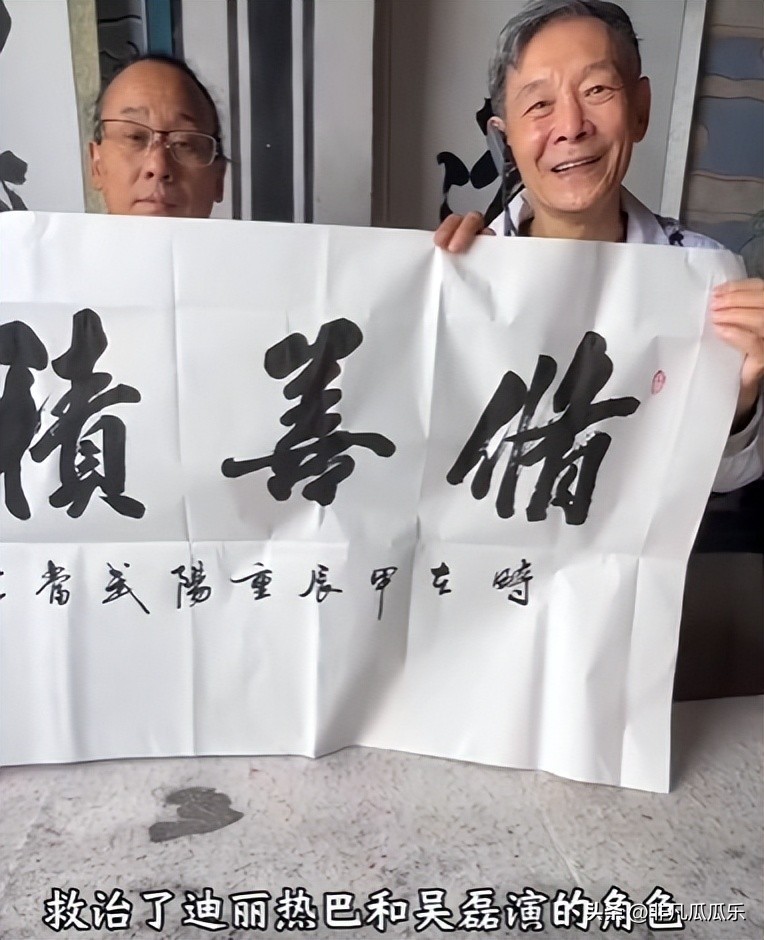 脩善積
時在甲辰重陽武當
救治了迪丽热巴和吴磊演的角色
头条@非凡瓜瓜乐